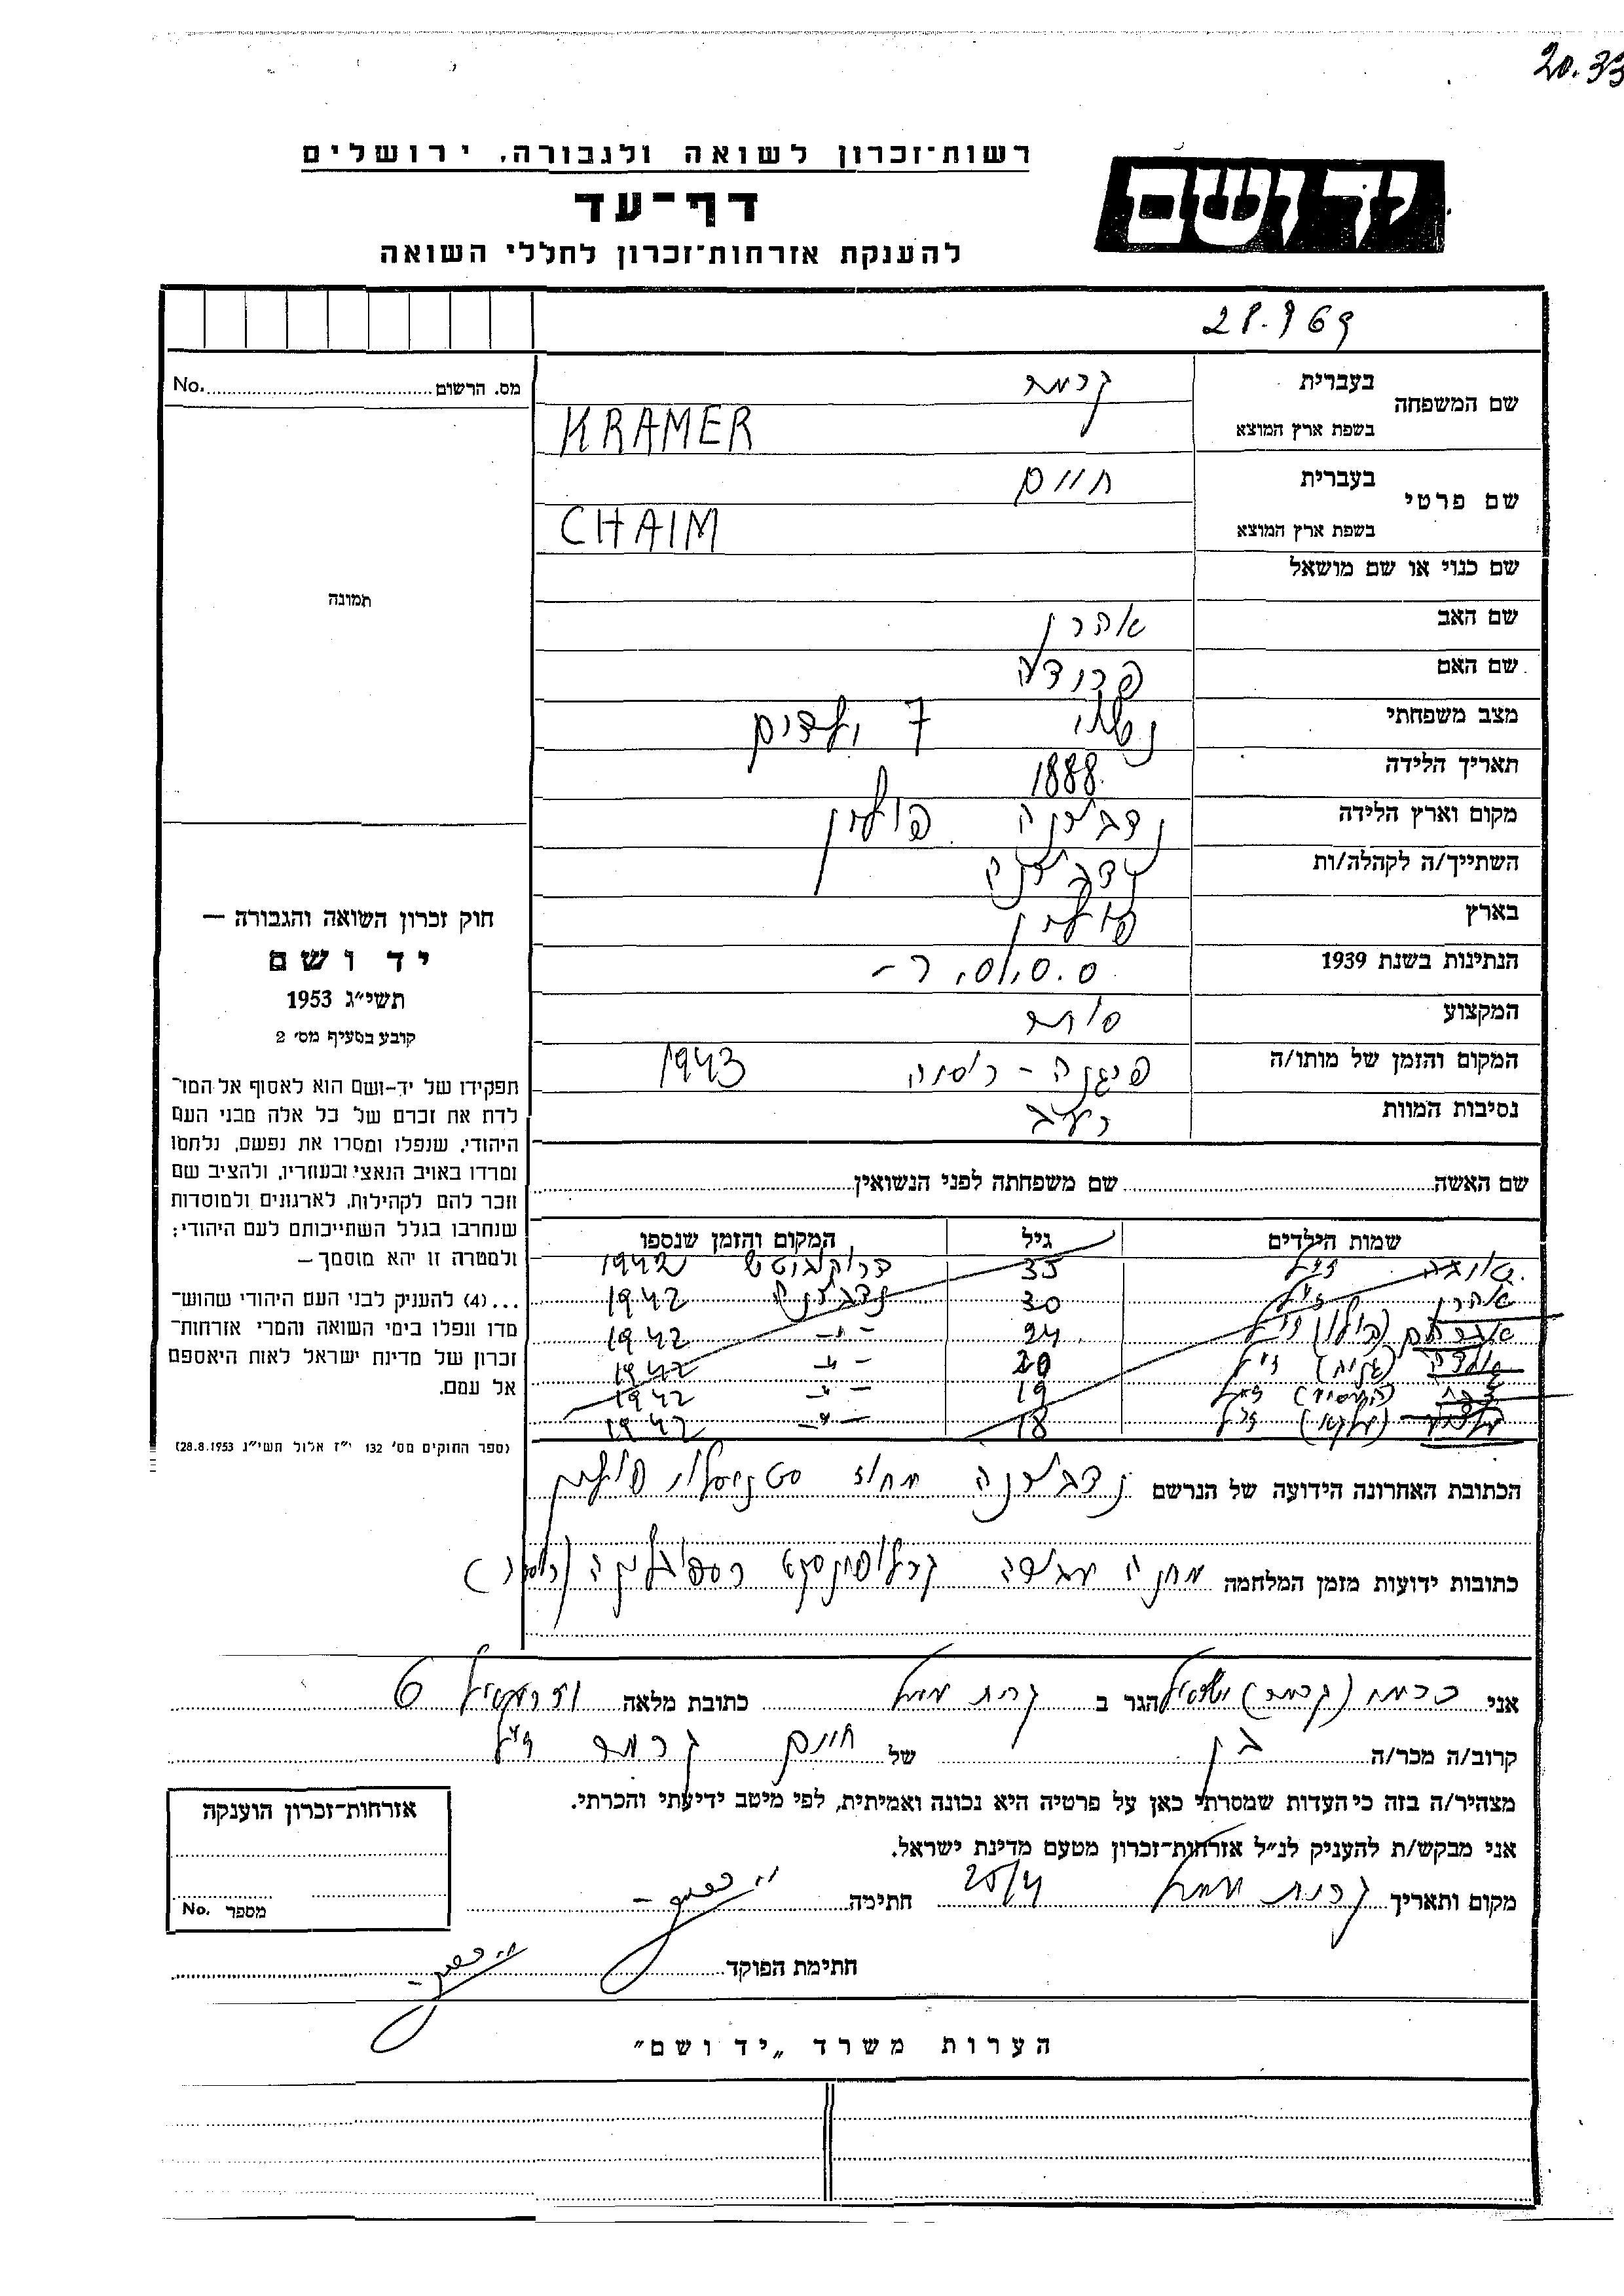 20.33
רשות־זכרון לשואה ולגבורה, ירושלים
יד ושם
דף־עד
להענקת אזרחות־זכרון לחללי השואה
מס. הרשום No.
תמונה
שם המשפחה
בעברית קרמר
בשפת ארץ המוצא KRAMER
שם פרטי
בעברית חיים
בשפת ארץ המוצא CHAIM
שם כנוי או שם מושאל
שם האב אהרן
שם האם פרודה
מצב משפחתי נשוי 7 ילדים
תאריך הלידה 1888
מקום וארץ הלידה נדבורנה פולין
השתייך/ה לקהלה/ות נדבורנה
בארץ פולין
הנתינות בשנת 1939
המקצוע סוחר
המקום והזמן של מותו/ה רוסיה 1943
נסיבות המוות רעב
חוק זכרון השואה והגבורה —
יד ושם
תשי״ג 1953
קובע בסעיף מס׳ 2
תפקידו של יד-ושם הוא לאסוף אל המו־
לדת את זכרם של כל אלה מבני העם
היהודי, שנפלו ומסרו את נפשם, נלחמו
ומרדו באויב הנאצי ובעוזריו, ולהציב שם
וזכר להם לקהילות, לארגונים ולמוסדות
שנחרבו בגלל השתייכותם לעם היהודי;
ולמטרה זו יהא מוסמך —
...(4) להעניק לבני העם היהודי שהוש־
מדו ונפלו בימי השואה והמרי אזרחות־
זכרון של מדינת ישראל לאות היאספם
אל עמם.
(ספר החוקים מס׳ 132 י״ז אלול תשי״ג 28.8.1953)
שם האשה שם משפחתה לפני הנשואין
שמות הילדים גיל המקום והזמן שנספו
ז״ל 33 1942
אהרן ז״ל 30 נדבורנה 1942
אברהם ז״ל 24 -״- 1942
ז״ל 20 -״- 1942
ז״ל 19 -״- 1942
ז״ל 18 -״- 1942
הכתובת האחרונה הידועה של הנרשם נדבורנה מחוז סטניסלוי פולין
כתובות ידועות מזמן המלחמה מחנה עבודה
אני כרמי (קרמר) ישראל הגר ב קרית כתובת מלאה 6
קרוב/ה מכר/ה בן של חיים קרמר ז״ל
מצהיר/ה בזה כי העדות שמסרתי כאן על פרטיה היא נכונה ואמיתית, לפי מיטב ידיעתי והכרתי.
אני מבקש/ת להעניק לנ״ל אזרחות־זכרון מטעם מדינת ישראל.
מקום ותאריך קרית 25/4 חתימה
חתימת הפוקד
אזרחות־זכרון הוענקה
מספר No.
הערות משרד „יד ושם״